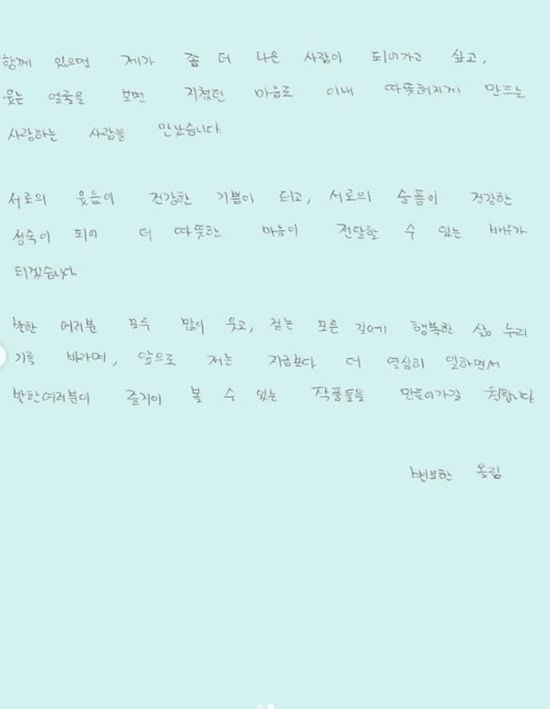 함께 있으면 제가 좀 더 나은 사람이 되어가고 싶고,
웃는 얼굴을 보면 지쳤던 마음도 이내 따뜻해지게 만드는
사랑하는 사람을 만났습니다.
서로의 웃음이 건강한 기쁨이 되고, 서로의 슬픔이 건강한
성숙이 되어 더 따뜻한 마음이 전달할 수 있는 배우가
되겠습니다.
한 여러분 모두 많이 웃고, 걷는 모든 길에 행복한 삶 누리
기를 바라며, 앞으로 저는 지금보다 더 열심히 일하면서
한여러분이 즐거이 볼 수 있는 작품들을 만들어가길 원합니다.
변보한 올림